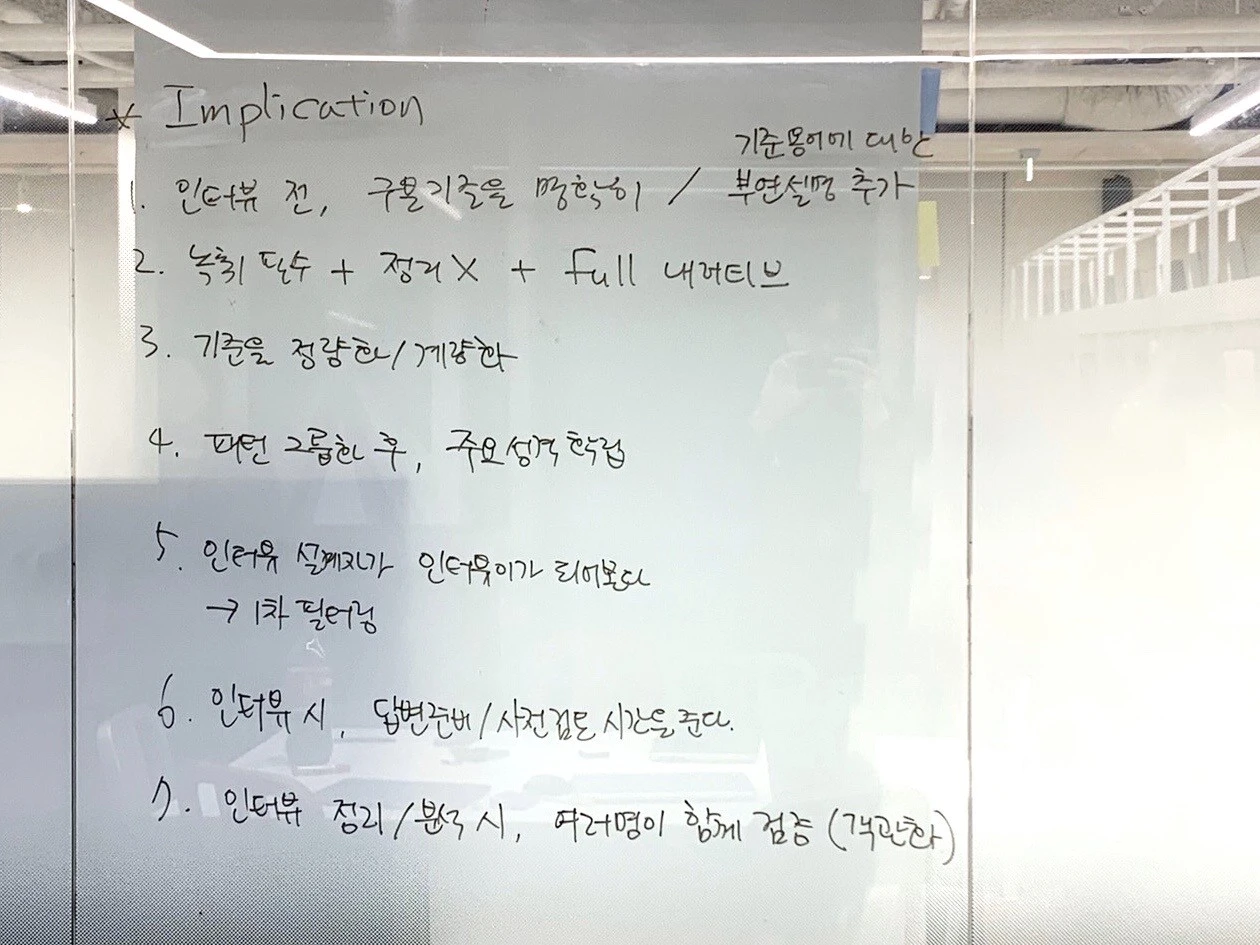 * Implication
기준용어에 대한
1. 인터뷰 전, 구분기준을 명확히 / 부연설명 추가
2. 녹취 필수 + 정리X + full 내러티브
3. 기준을 정량화/계량화
4. 패턴 그룹화 후, 주요성격확립
5. 인터뷰 설계자가 인터뷰이가 되어본다
→ 1차 필터링
6. 인터뷰 시, 답변준비/사전검토 시간을 준다.
7. 인터뷰 정리/분석 시, 여러명이 함께 검증 (객관화)